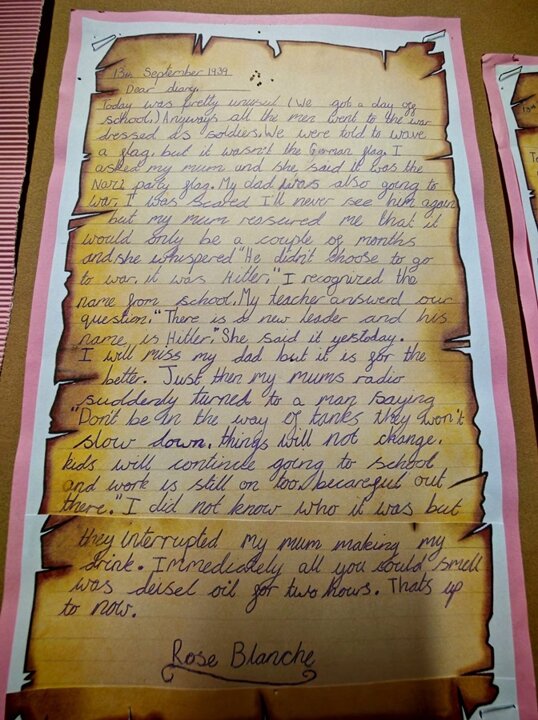 13th September 1939
Dear diary,
Today was pretty unusual (We got a day off
school.) Anyways all the men went to the war
dressed as soldiers. We were told to wave
a flag, but it wasn't the German flag. I
asked my mum and she said it was the
Nazi party flag. My dad was also going to
war. I was scared I'll never see him again
but my mum reasured me that it
would only be a couple of months
and she whispered "He didn't choose to go
to war, it was Hitler." I recognized the
name from school. My teacher answerd our
question. "There is a new leader and his
name is Hitler." She said it yerstoday.
"I will miss my dad but it is for the
better. Just then my mums radio
suddenly turned to a man saying
"Don't be in the way of tanks they won't
slow down. things will not change.
kids will continue going to school
and work is still on too. becareful out
there." I did not know who it was but
they interrupted my mum making my
drink. Immediately all you could smell
was deisel oil for two hours. Thats up
to now.
Rose Blanche